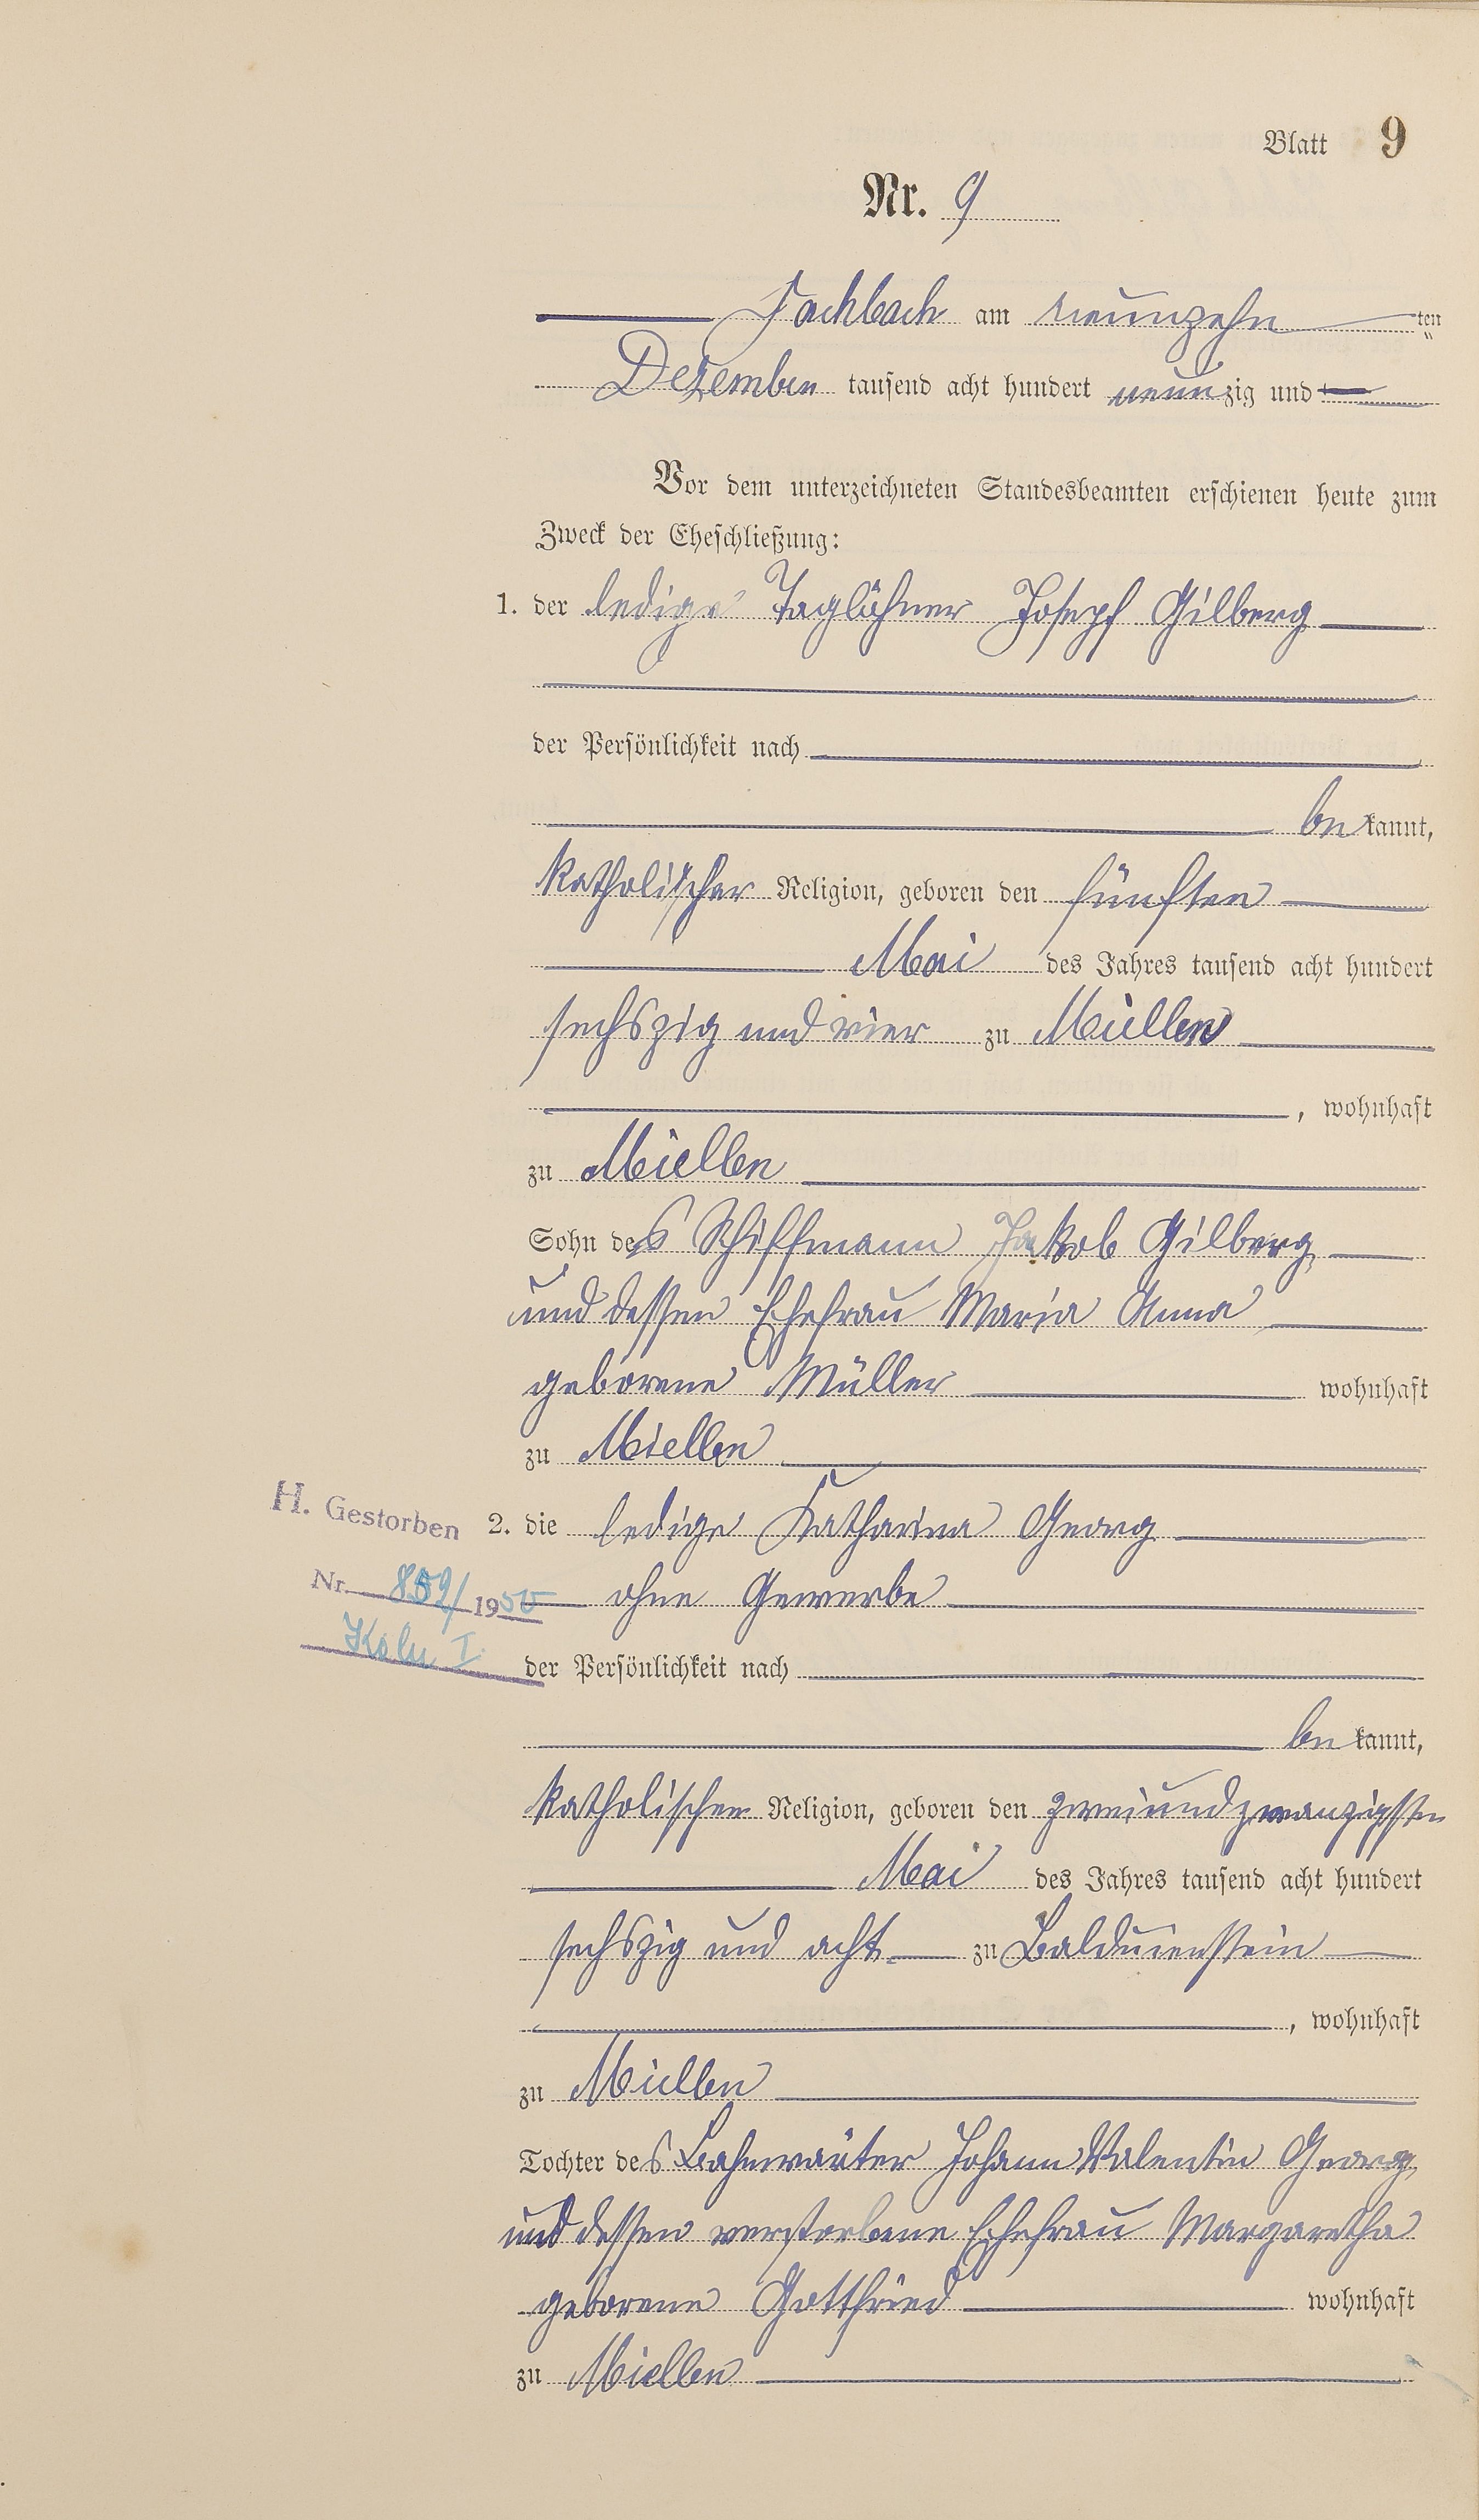 Blatt 9
Nr. 9
Fachbach am neunzehn ten
Dezember tausend acht hundert neunzig und
Vor dem unterzeichneten Standesbeamten erschienen heute zum
Zweck der Eheschließung:
1. der ledige Taglöhner Joseph Gilberg
der Persönlichkeit nach
be kannt,
katholischer Religion, geboren den fünften
Mai des Jahres tausend acht hundert
sechszig und vier zu Miellen
, wohnhaft
zu Miellen
Sohn des Schiffmann Jakob Gilberg
und dessen Ehefrau Maria Anna
geborene Müller wohnhaft
zu Miellen
H. Gestorben
Nr. 859/1950
Köln I
2. die ledige Katharina Georg
ohne Gewerbe
der Persönlichkeit nach
be kannt,
katholischer Religion, geboren den zweiundzwanzigsten
Mai des Jahres tausend acht hundert
sechszig und acht zu Balduinstein
, wohnhaft
zu Miellen
Tochter des Bahnwärter Johann Valentin Georg
und dessen verstorbene Ehefrau Margaretha
geborene Gottfried wohnhaft
zu Miellen